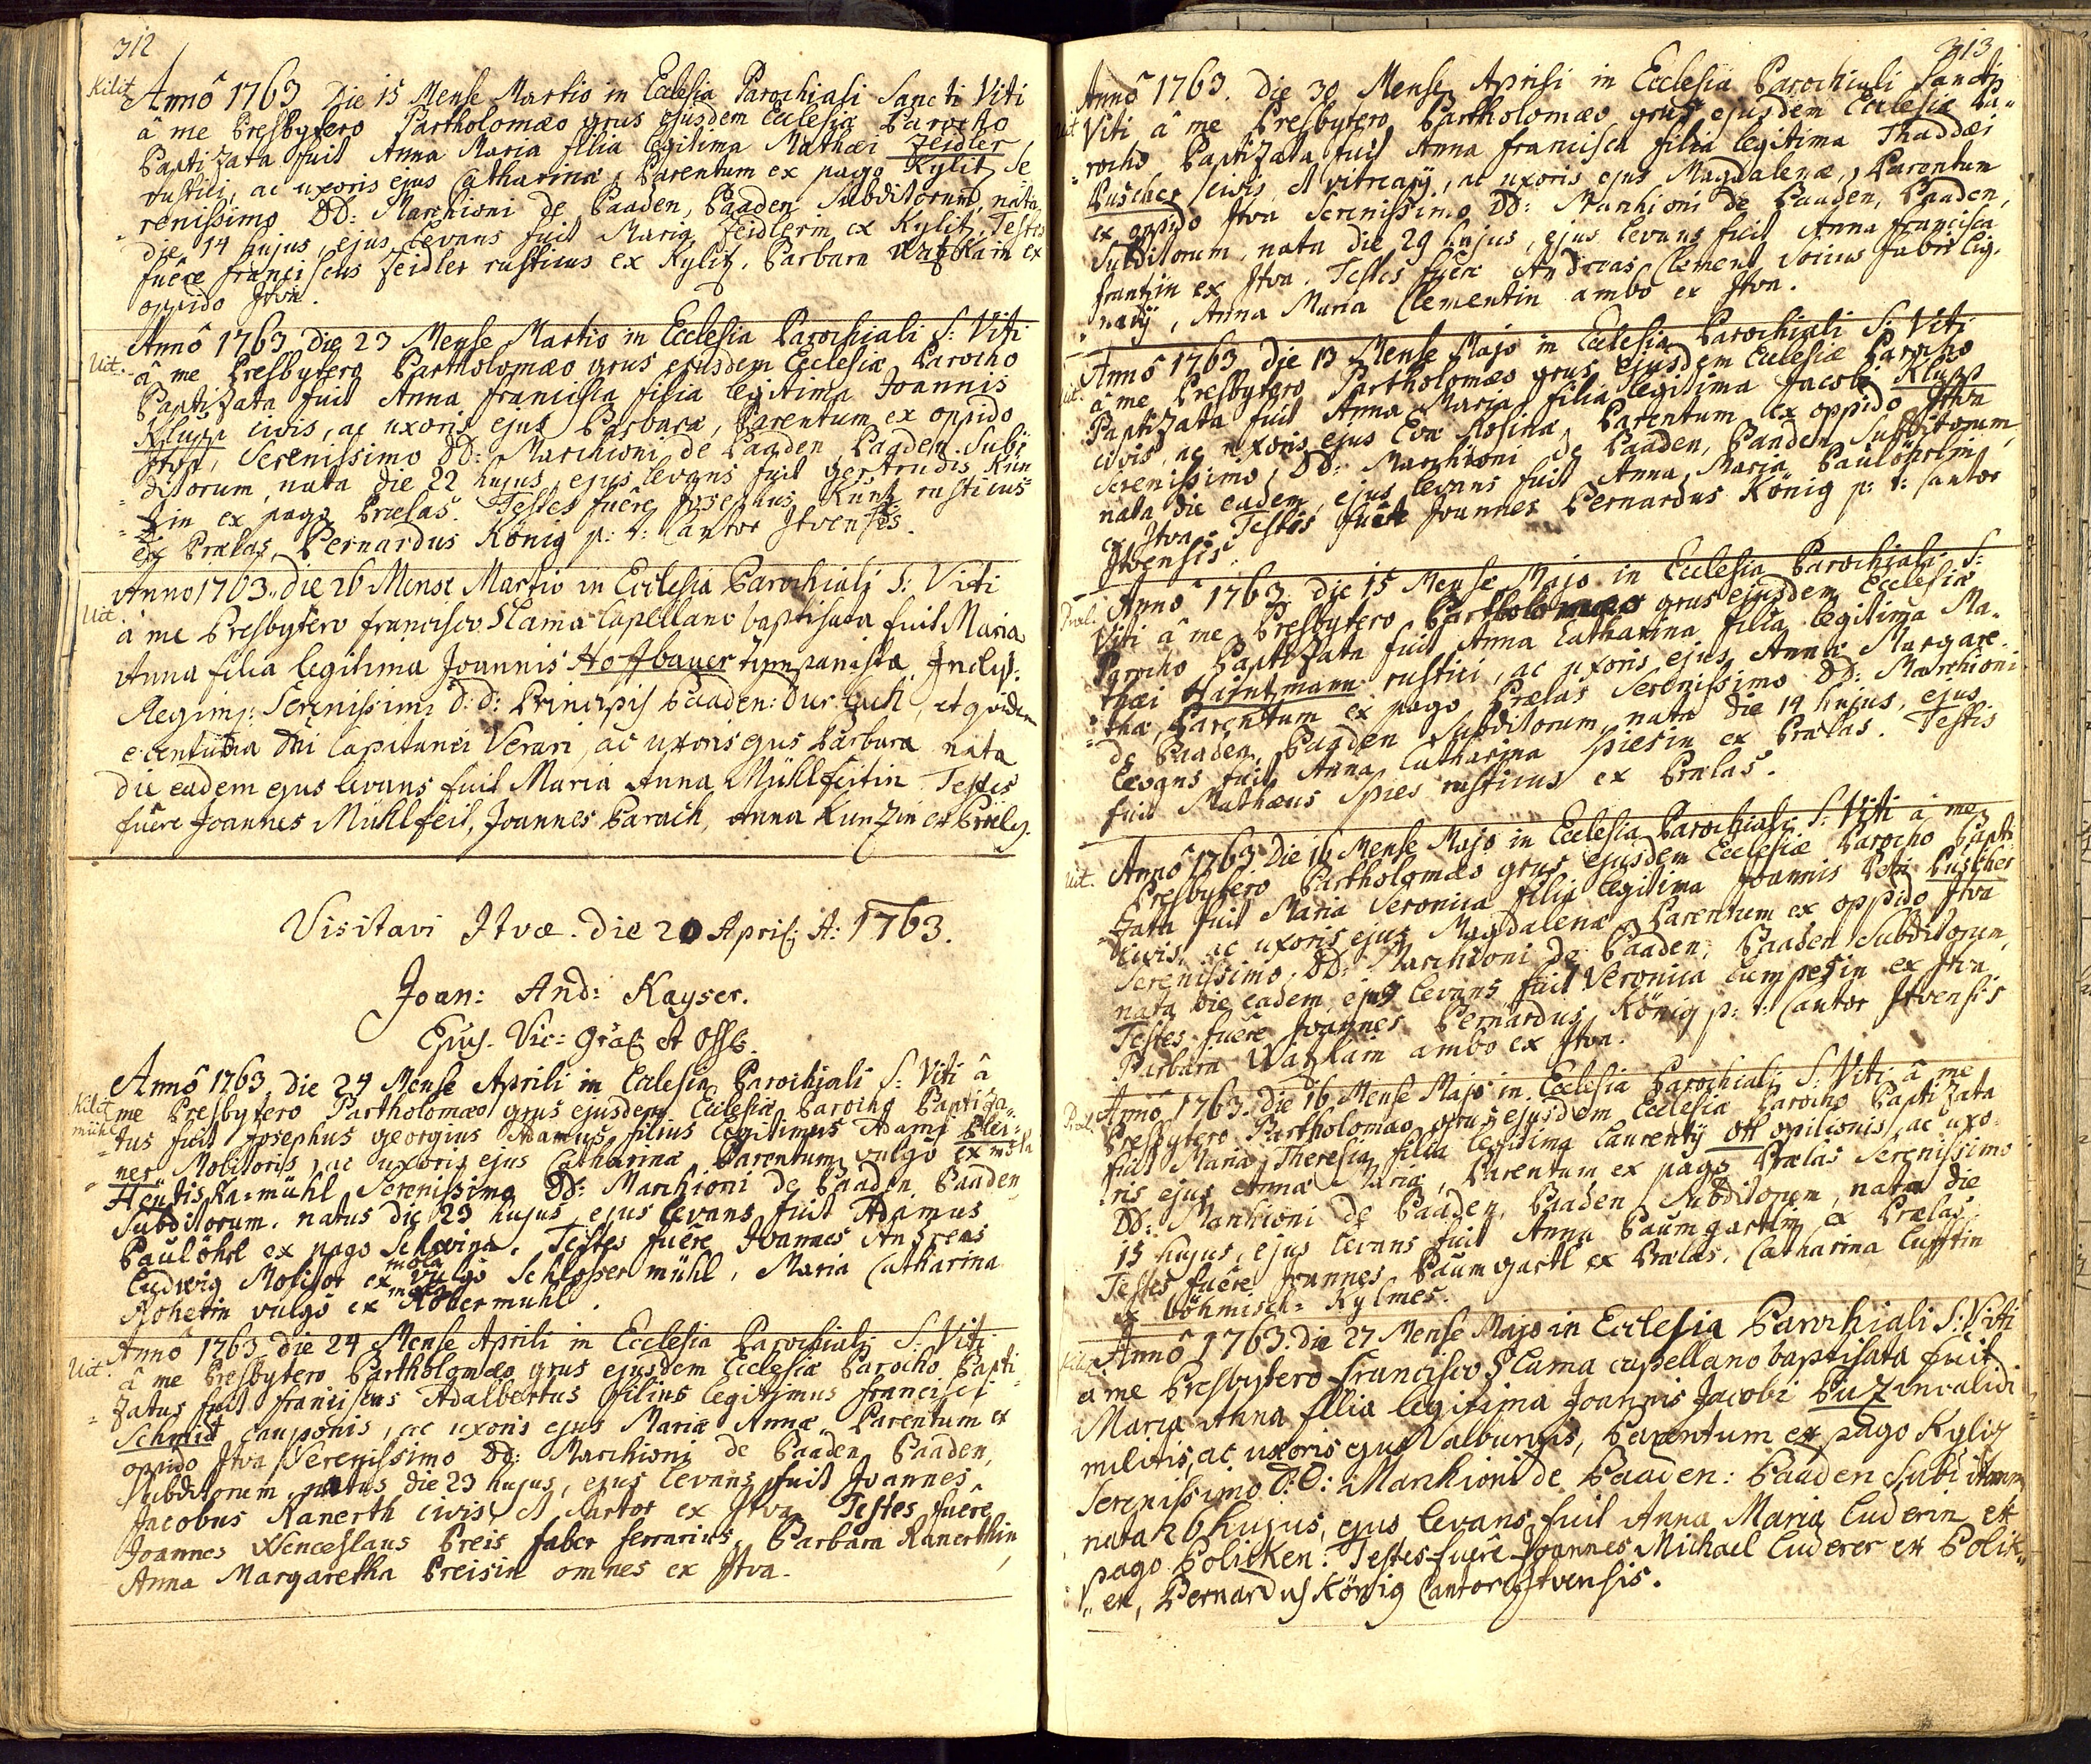 312
Kilit. Annô 1763 Die 15 Mense Martio in Eclesia Parochiali Sancti Viti
â me Presbytero Partholomæo grus ejusdem Ecclesiæ Parocho
Baptizata fuit Anna Maria filia legitima Mathæi Zeidler
rustici, ac uxoris ejus Catharinæ, Parentum ex pago Kylitz Se
renissimo DD: Marchioni de Baaden, Baaden Subditorum, nata
die 14 hujus, ejus levans fuit Maria Zeidlerin ex Kylitz, Testes
fuêre Franciscus Zeidler rusticus ex Kylitz, Barbara Watzkain ex
oppido Itva.
Annô 1763 die 23 Mense Martio in Ecclesia Parochiali S: Viti
Uit. â me Presbytero Partholomæo grus ejusdem Ecclesiæ Parocho
Baptizata fuit Anna Francisca filia legitima Joannis
Klupp civis, ac uxoris ejus Barbaræ, Parentum ex oppido
Itva, Serenissimo DD: Marchioni de Baaden Baaden Subi
ditorum, nata die 22 hujus, ejus levans fuit gertrudis Kün
tzin ex pago Prælas. Testes fuêre Josephus Küntz rusticus
ex Prælas, Bernardus König p: t: Cantor Itvensis.
Anno 1763.. die 26 Mense Martio in Ecclesia Parochiali S: Viti
Uit. â me Presbytero Francisco Slama Capellano baptisata fuit Maria
Anna filia legitima Joannis Hoffbauer tympanistæ Inclyt:
Regimi: Serenissimi D: D: Principis Baaden: Durlach, et quidem
e centuria Dni Capitanei Verari, ac uxoris ejus Barbara nata
die eadem ejus levans fuit Maria Anna Mühlfeitin Testes
fuere Joannes Mühlfeit, Joannes Barach, Anna Kunzin ex Præls.
Visitavi Itvæ. die 20 April: A: 1763.
Joan: And: Kayser.
Ejus. Vic: Gral: et Offs.
Annô 1763, die 24 Mense Aprili in Eclesia Parochiali S: Viti â
Kilit mühl me Presbytero Partholomæo grus ejusdem Ecclesiæ Parocho Baptiza=
tus fuit Josephus georgius Adamus, filius legitimus Adami Plei=
ner Molitoris, ac uxoris ejus Catharinæ Parentum vulgô ex mola
Hentiska=mühl Serenissimo DD: Marchioni de Baaden Baaden
Subditorum. natus die 23 hujus, ejus levans fuit Adamus
Paulöhrl ex pago Schwina. Testes fuêre Joannes Andreas
Ludwig Molitor ex mola vulgô Schlosser mühl, Maria Catharina
Roherin vulgô ex mola Robermühl.
Annô 1763 die 24 Mense Aprili in Ecclesia Parochiali S: Viti
Uit. â me Presbytero Partholomæo grus ejusdem Ecclesiæ Parocho Bapti
zatus fuit Franciscus Adalbertus filius legitimus Francisci
Schmid cauponis, ac uxoris ejus Mariæ Annæ, Parentum ex
oppido Itva Serenissimo DD: Marchioni de Baaden Baaden,
Subditorum, natus die 23 hujus, ejus levans fuit Joannes
Jacobus Ranerth civis, et Sartor ex Itva Testes fuêre
Joannes Wenceslaus Preis faber ferrarius, Barbara Ranerthin
Anna Margaretha Preisin omnes ex Itva.
313
Annô 1763. die 30 Mense Aprili in Ecclesia Parochiali Sancti
Uit. Viti â me Presbytero Partholomæo grus ejusdem Ecclesiæ Pa=
rocho Baptizata fuit Anna Francisca filia legitima Thaddæi
Puscher civis, et vitrearij, ac uxoris ejus Magdalenæ, Parentum
ex oppido Itva Serenissimo DD: Marchioni de Baaden, Baaden,
Subditorum, nata die 29 hujus, ejus levans fuit Anna Francisca
Frantzin ex Itva. Testes fuêre Andreas Clement Socius Fabri lig=
narij, Anna Maria Clementin ambo ex Itva.
Annô 1763 die 13 Mense Majo in Ecclesia Parochiali S: Viti
Uit. â me Presbytero Partholomæo grus ejusdem Ecclesiæ Parocho
Baptizata fuit Anna Maria filia legitima Jacobi Klupp
civis, ac uxoris ejus Eva Rosina, Parentum ex oppido Itva
Serenissimo, DD: Marchioni de Baaden, Baaden Subditorum,
nata die eadem, ejus levans fuit Anna Maria Paulöhrlin
ex Itva. Testes fuêre Joannes Bernardus König p: t: Cantor
Itvensis.
Præl. Annô 1763 die 15 Mense Majo in Ecclesia Parochiali S:
Viti â me Presbytero Partholomæo grus ejusdem Ecclesiæ
Parocho Baptizata fuit Anna Catharina filia legitima Ma=
thæi Haintzmann rustici, ac uxoris ejus Annæ Margare=
thæ, Parentum ex pago Prælas Serenissimo DD: Marchioni
de Baaden, Baaden Subditorum, nata die 14 hujus, ejus
levans fuit Anna Catharina Spiesin ex Prælas. Testis
fuit Mathæus Spies rusticus ex Prælas.
Uit. Annô 1763 Die 16 Mense Majo in Ecclesia Parochiali S: Viti â me
Presbytero Partholomæo grus ejusdem Ecclesiæ Parocho Bapti
zata fuit Maria Veronica filia legitima Joannis Puscher
civis, ac uxoris ejus Magdalenæ, Parentum ex oppido Itva
Serenissimo, DD: Marchioni de Baaden, Baaden Subditorum,
nata die eadem ejus levans fuit Veronica Lumpesin ex Itva
Testes fuêre Joannes Bernardus König p: t: Cantor Itvensis
Barbara Watzkain ambo ex Itva.
Præl. Annô 1763. die 16 Mense Majo in Ecclesia Parochiali S: Viti â me
Presbytero Partholomæo grus ejusdem Ecclesiæ Parocho Baptizata
fuit Maria Theresia filia legitima Laurentij Ott opilionis, ac uxo=
ris ejus Annæ Mariæ, Parentum ex pago Prælas Serenissimo
DD: Marchioni de Baaden, Baaden Subditorum, nata die
15 hujus, ejus levans fuit Anna Baumgartlin ex Prælas.
Testes fuêre Joannes Baumgartl ex Prælas, Catharina Lufftin
ex böhmisch= Kylmes.
Kilitz Annô 1763. die 27 Mense Majo in Ecclesia Parochiali S: Viti
a me Presbytero Francisco Slama capellano baptisata fuit
Maria Anna filia legitima Joannis Jacobi Buz invalidi
militis, ac uxoris ejus Walburgis, Parentum ex pago Kyliz
Serenissimo D: D: Marchioni de Baaden: Baaden Subditorum
nata 26 hujus, ejus levans fuit Anna Maria Luderin ex
pago Policken. Testes fuêre Joannes Michael Luderer ex Polik=
en, Bernardus König Cantor Itvensis.